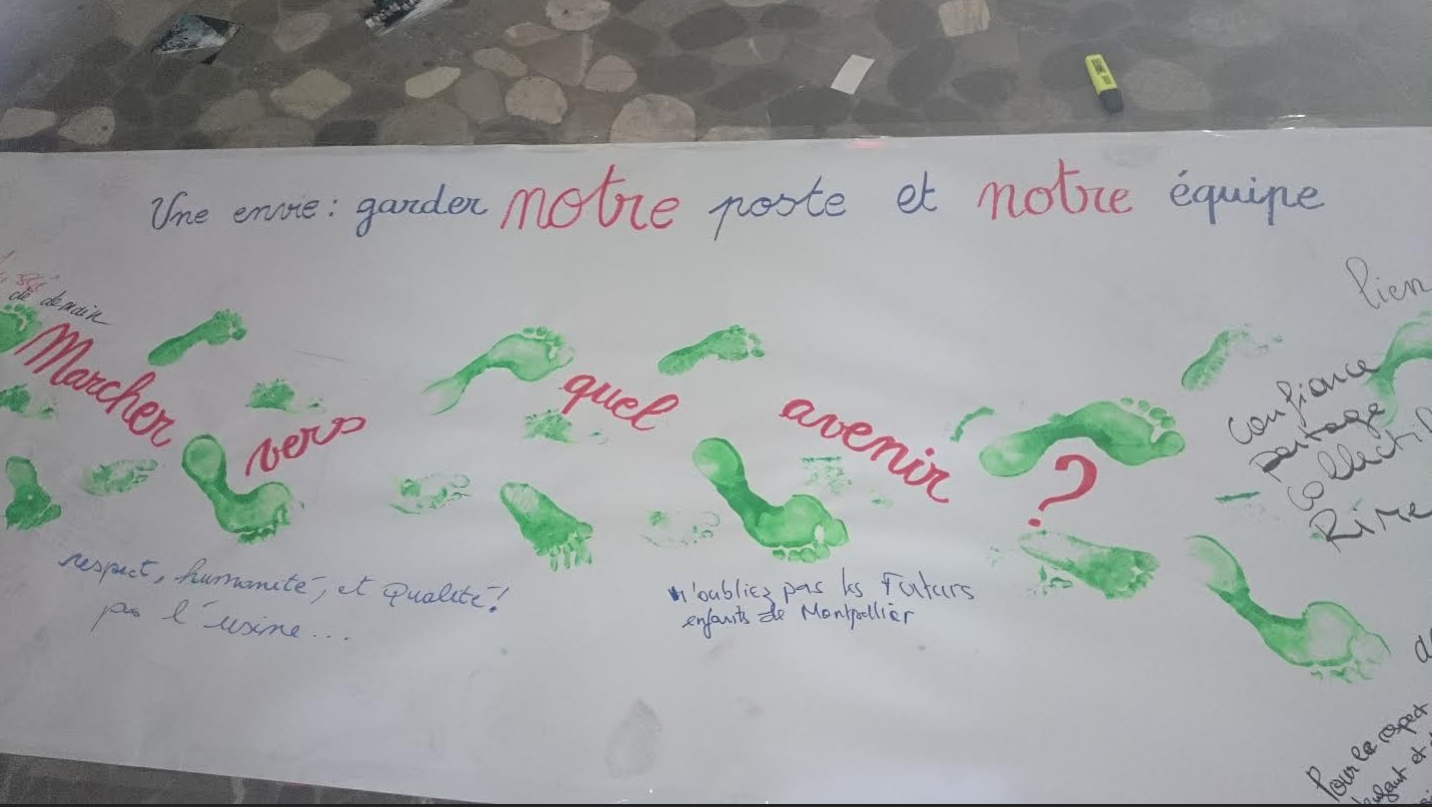 Une envie : garder notre poste et notre équipe
de demain
Marcher vers quel avenir ?
lien
confiance
partage
Collectif
respect, humanité, et Qualité !
pas l'usine...
n'oubliez pas les Futurs
enfants de Montpellier
Pour le respect